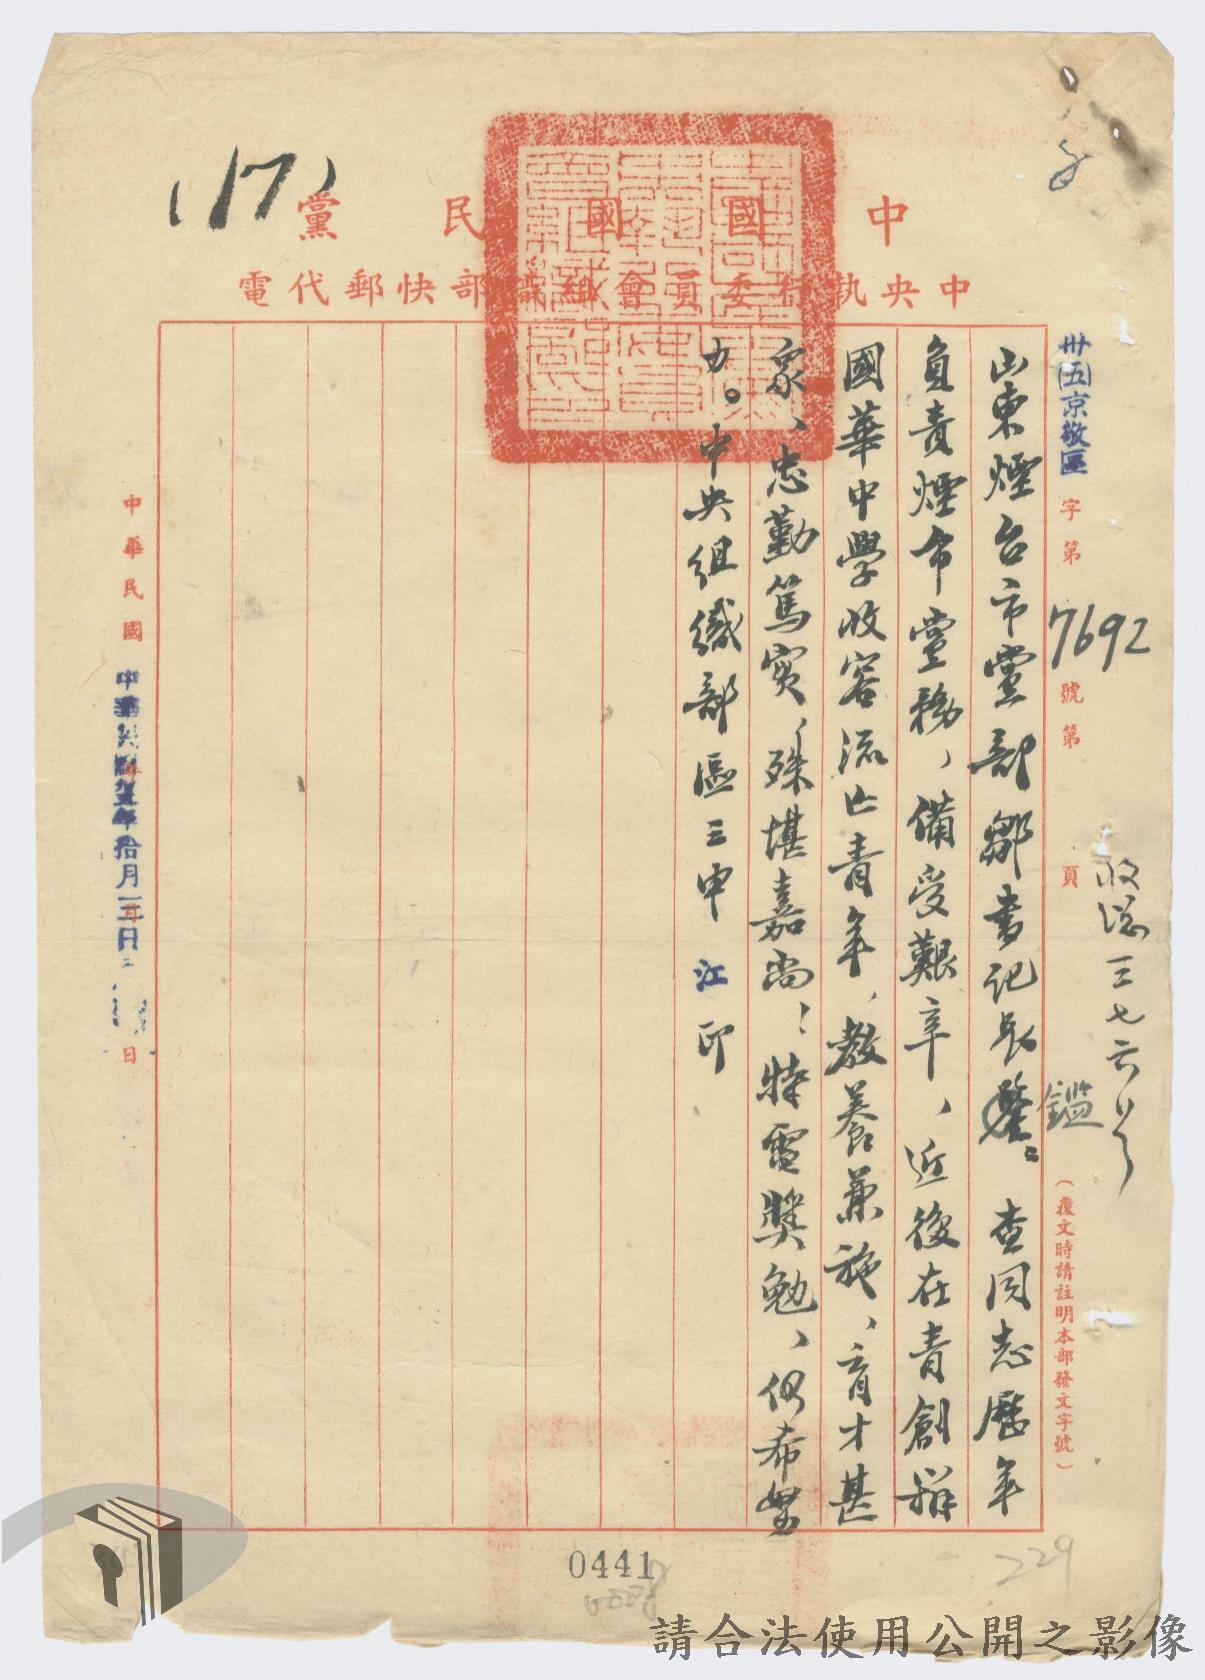 (117)
中國國民黨
中央執行委員會組織部快郵代電
卅(五)京敬區字第7692號第 頁
(覆文時請註明本部發文字號)
收總三七六號
鑑
山東煙台市黨部鄒書記長鑒：查同志歷年
負責煙市黨務，備受艱辛，近復在青創辦
國華中學收容流亡青年，教養兼施，育才甚
眾、忠勤篤實，殊堪嘉尚；特電獎勉，仍希努
力。中央組織部區三申江印
中華民國
日
0441
229
請合法使用公開之影像